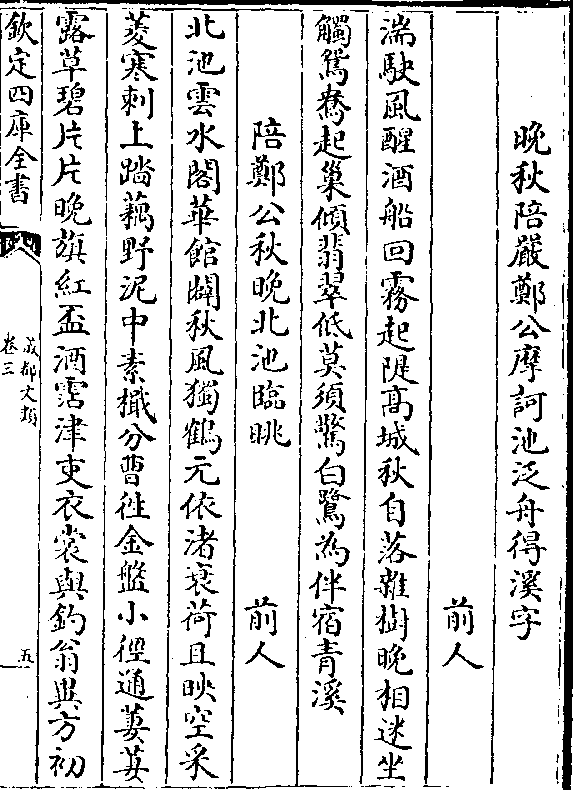 晚秋陪嚴鄭公摩訶池泛舟得溪字
前人
湍駛風醒酒船回霧起隄高城秋自落雜樹晚相迷坐
觸鴛鴦起巢傾翡翠低莫須驚白鷺為伴宿青溪
陪鄭公秋晚北池臨眺
前人
北池雲水闊華館闢秋風獨鶴元依渚衰荷且映空采
菱寒刺上踏藕野泥中素檝分曹徃金盤小徑通萋萋
露草碧片片晚旗紅盃酒霑津吏衣裳與釣翁異方初
欽定四庫全書
成都文類
卷三
五